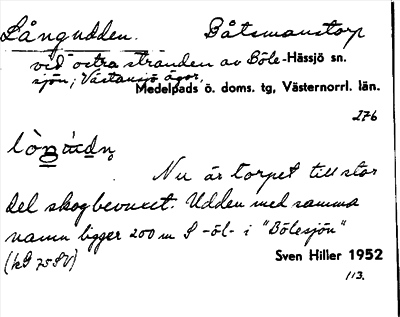 Långudden. Båtsmanstorp
vid östra stranden av Böle-Hässjö sn.
sjön; Västansjö ägor,
Medelpads ö. doms. tg, Västernorrl. län.
276
Nu är torpet till stor
del skogbevuxet. Udden med samma
namn ligger 200 m S -öl- i "Bölesjön"
Sven Hiller 1952
113.